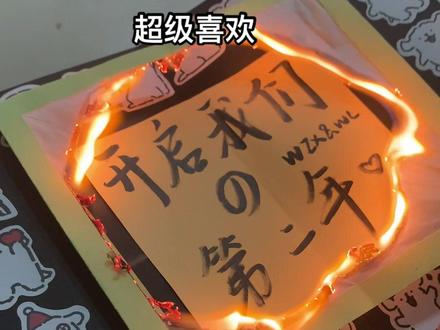 超级喜欢
开启我们
の
WZX&WL
第二年♡